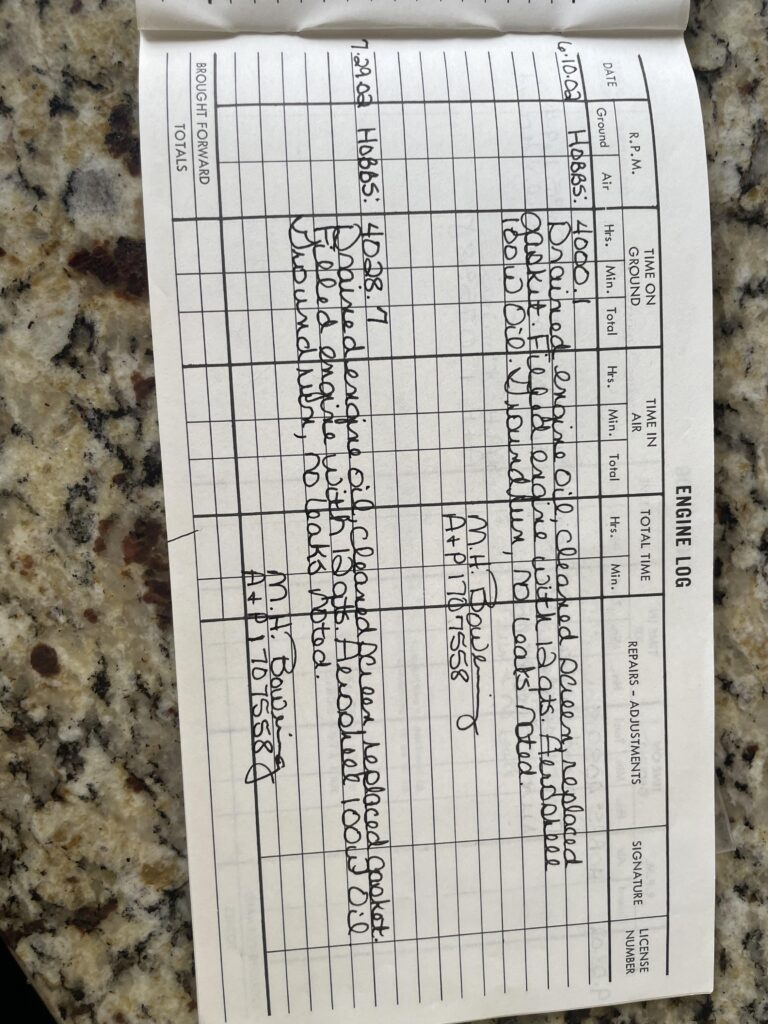 ENGINE LOG
DATE
R.P.M.
Ground
Air
TIME ON GROUND
Hrs.
Min.
Total
TIME IN AIR
Hrs.
Min.
Total
TOTAL TIME
Hrs.
Min.
REPAIRS – ADJUSTMENTS
SIGNATURE
LICENSE NUMBER
6.10.02 HOBBS: 4000.1
Drained engine oil, cleaned screen, replaced
gasket. Filled engine with 12 qts. Aeroshell
100W Oil. Ground run, no leaks noted.
M.H. Bowering
A+P 1707558
7.29.02 HOBBS: 4028.7
Drained engine oil, cleaned screen, replaced gasket.
Filled engine with 12 qts. Aeroshell 100W Oil
Ground run, no leaks noted.
M.H. Bowering
A+P 1707558
BROUGHT FORWARD
TOTALS